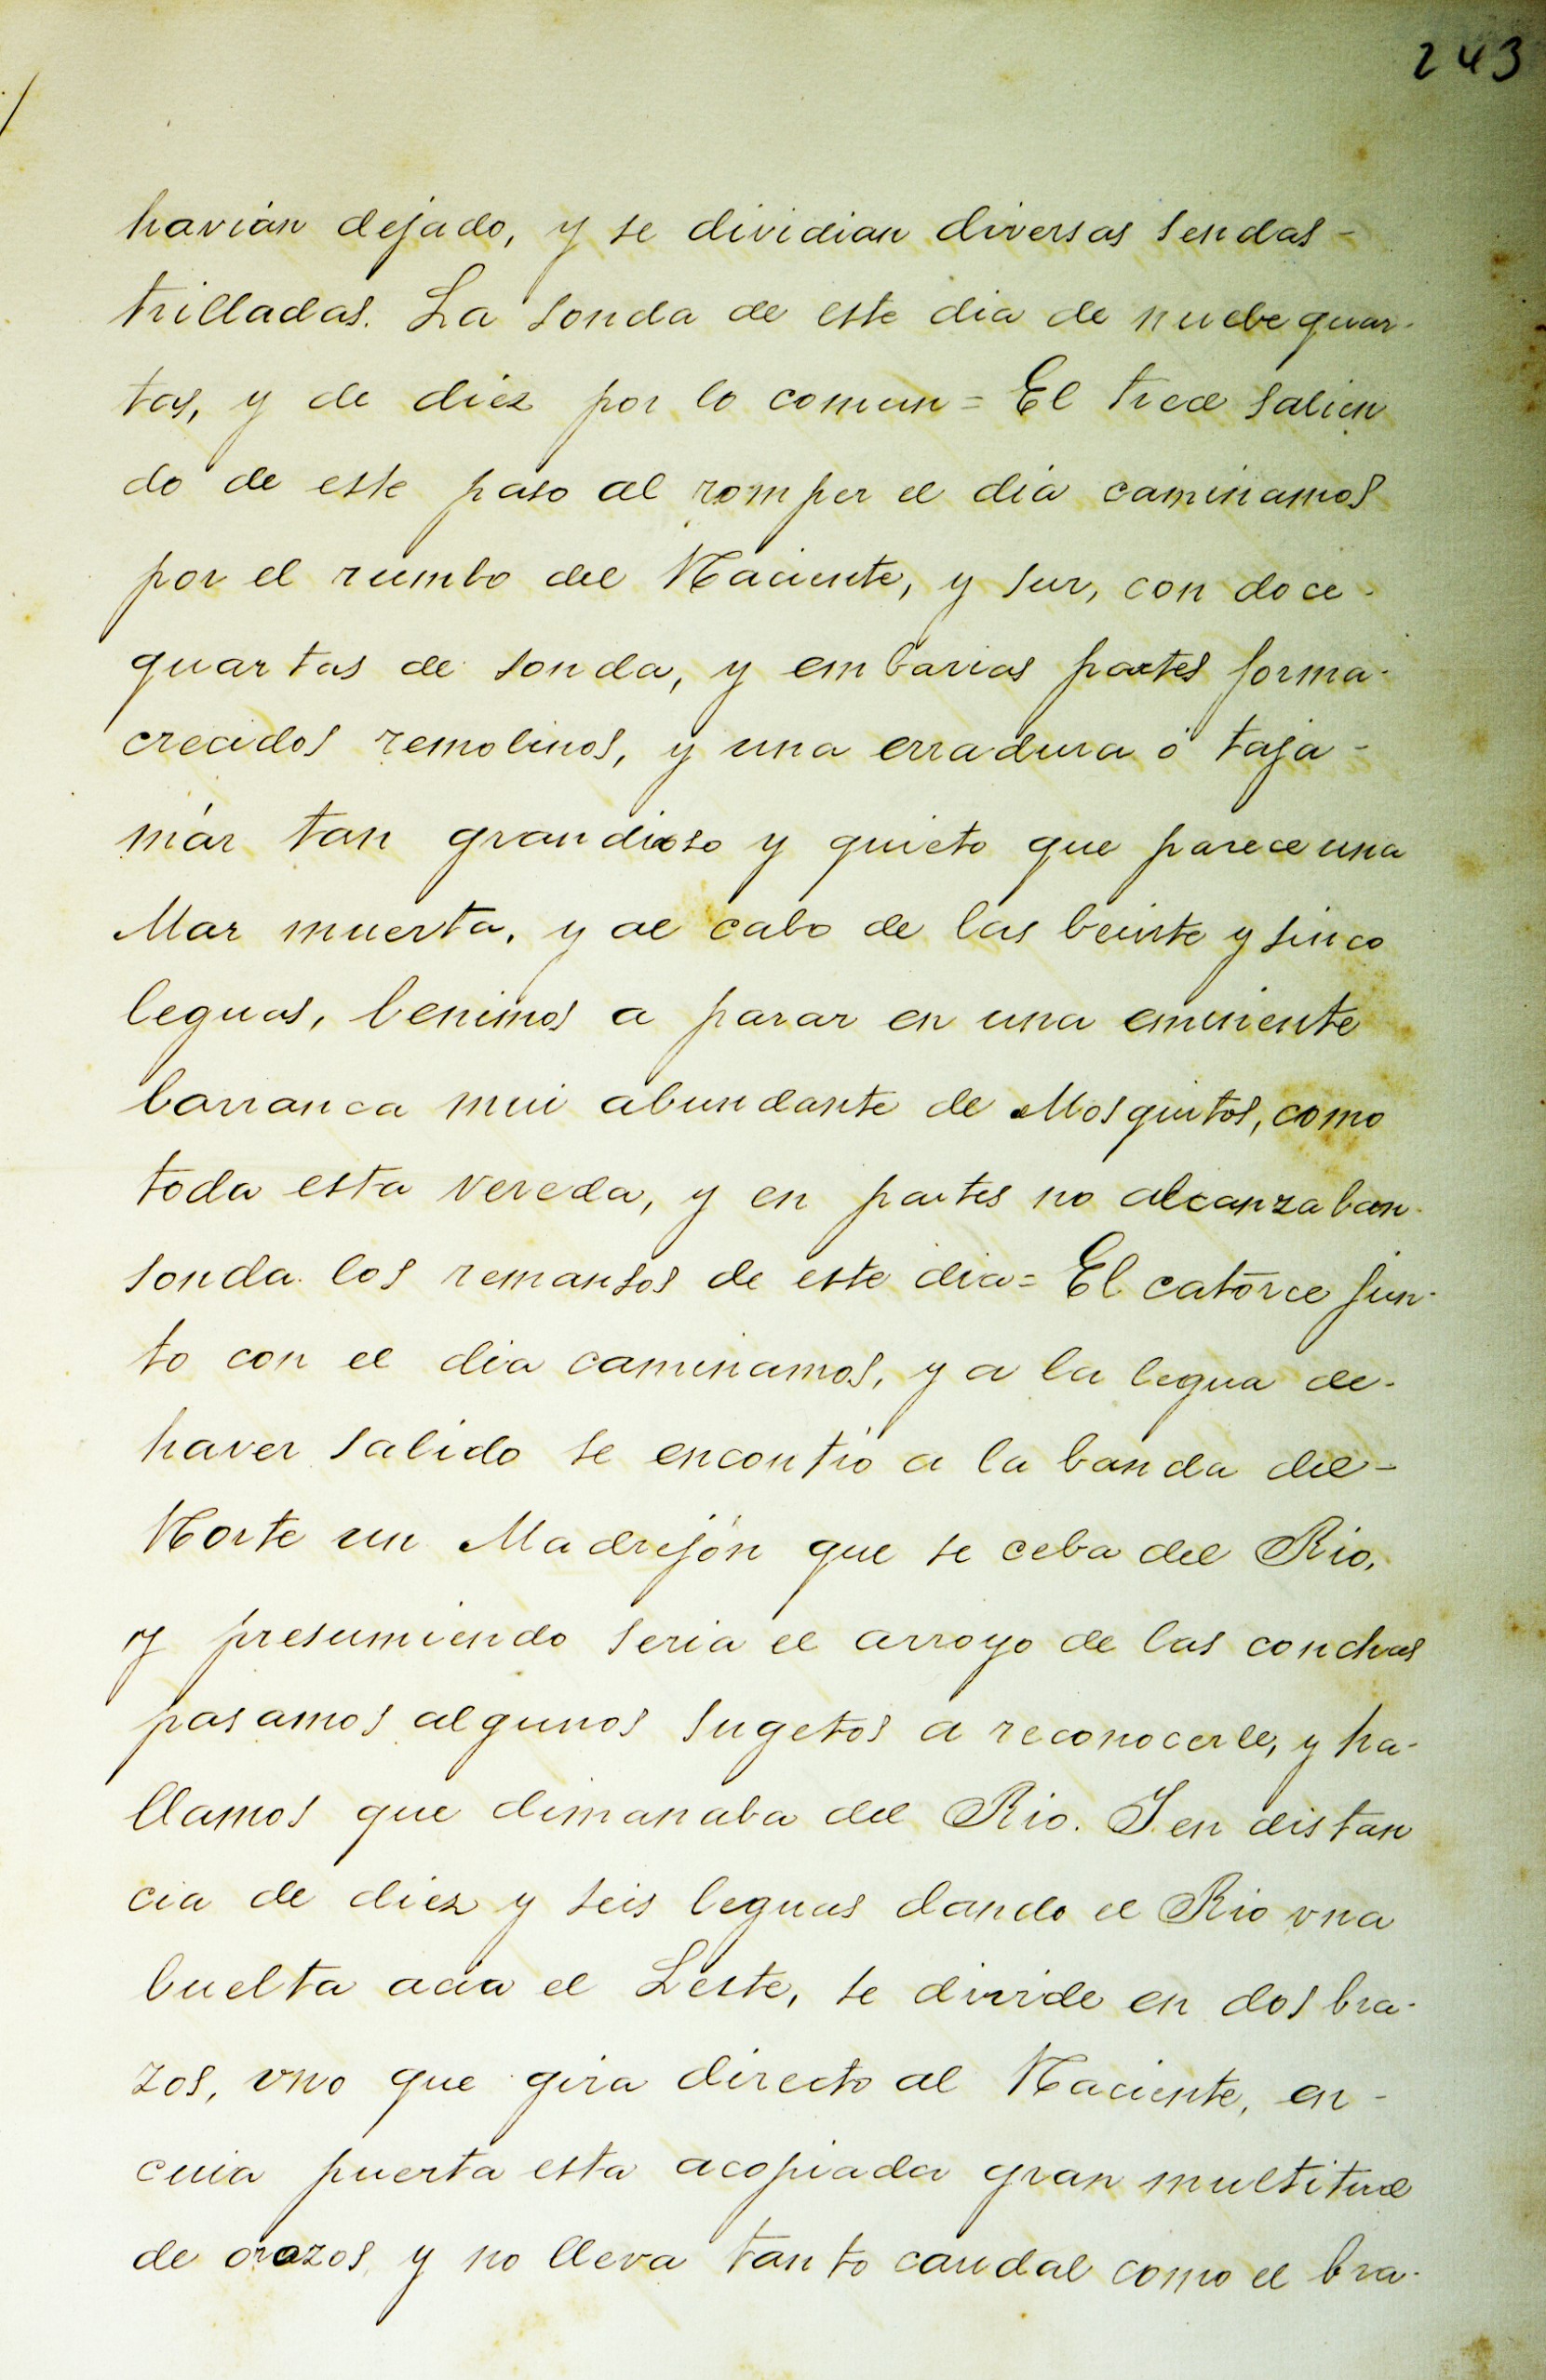 243
havián dejado, y se dividian diversas sendas-
trilladas. La sonda de este dia de nuebe quar-
tas, y de diez por lo comun = El trece salien
do de este paso al romper el dia caminamos
por el rumbo del Naciente, y sur, con doce-
quartas de sonda, y em barias partes forma-
crecidos remolinos, y una erradura ó taja-
már tan grandioso y quieto que parece una
Mar muerta, y al cabo de las beinte y sinco
leguas, benimos a parar en una eminente
barranca mui abundante de Mosquitos, como
toda esta vereda, y en partes no alcanzaban-
sonda los remansos de este dia = El catorce jun-
to con el dia caminamos, y a la legua de-
haver salido se encontró a la banda del-
Norte un Madrejón que se ceba del Rio,
y presumiendo seria el arroyo de las conchas
pasamos algunos sugetos a reconocerle, y ha-
llamos que dimanaba del Rio. Y en distan
cia de diez y seis leguas dando el Rio vna
buelta acia el Leste, se divide en dos bra-
zos, vno que gira directo al Naciente, en-
cuia puerta esta acopiada gran multitud
de orozos y no lleva tanto caudal como el bra-